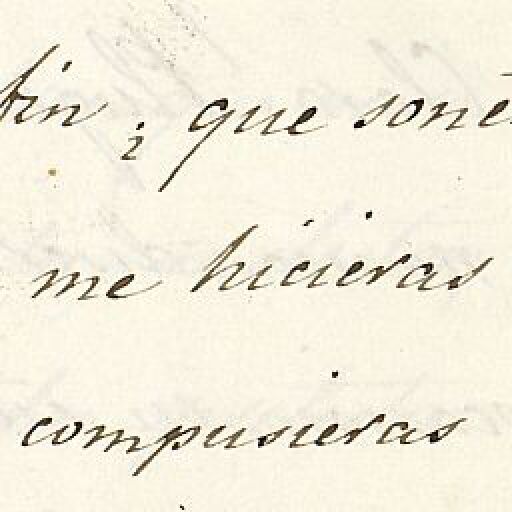 fin ; que sone
me hicieras
compusieras